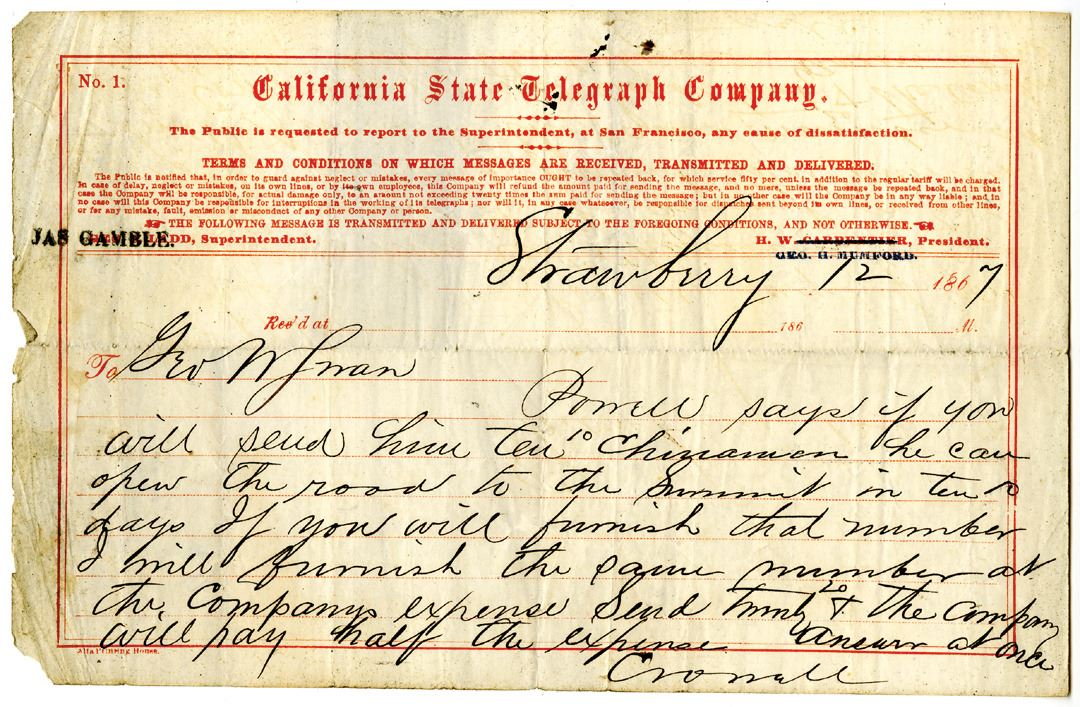 No. 1.
California State Telegraph Company.
The Public is requested to report to the Superintendent, at San Francisco, any cause of dissatisfaction.
TERMS AND CONDITIONS ON WHICH MESSAGES ARE RECEIVED, TRANSMITTED AND DELIVERED.
The Public is notified that, in order to guard against neglect or mistakes, every message of importance OUGHT to be repeated back, for which service fifty per cent. in addition to the regular tariff will be charged.
In case of delay, neglect or mistakes, on its own lines, or by its own employees, this Company will refund the amount paid for sending the message, and no more, unless the message be repeated back, and in that
case the Company will be responsible, for actual damage only, to an amount not exceeding twenty times the sum paid for sending the message; but in no other case will the Company be in any way liable; and, in
no case will this Company be responsible for interruptions in the working of its telegraphs; nor will it, in any case whatsoever, be responsible for dispatches sent beyond its own lines, or received from other lines,
or for any mistake, fault, omission or misconduct of any other Company or person.
THE FOLLOWING MESSAGE IS TRANSMITTED AND DELIVERED SUBJECT TO THE FOREGOING CONDITIONS, AND NOT OTHERWISE.
JAS GAMBLE.
LADD, Superintendent.
H. W. CARPENTIER, President.
GEO. H. MUMFORD.
Strawberry 12 1867
Rec'd at 186 M.
To Geo W Swan
Powell says if you
will send him ten 10 Chinamen he can
open the road to the Summit in ten 10
days If you will furnish that number
I will furnish the same number at
the Companys expense Send 20 & the Company
will pay half the expense answer at once
Alta Printing House.